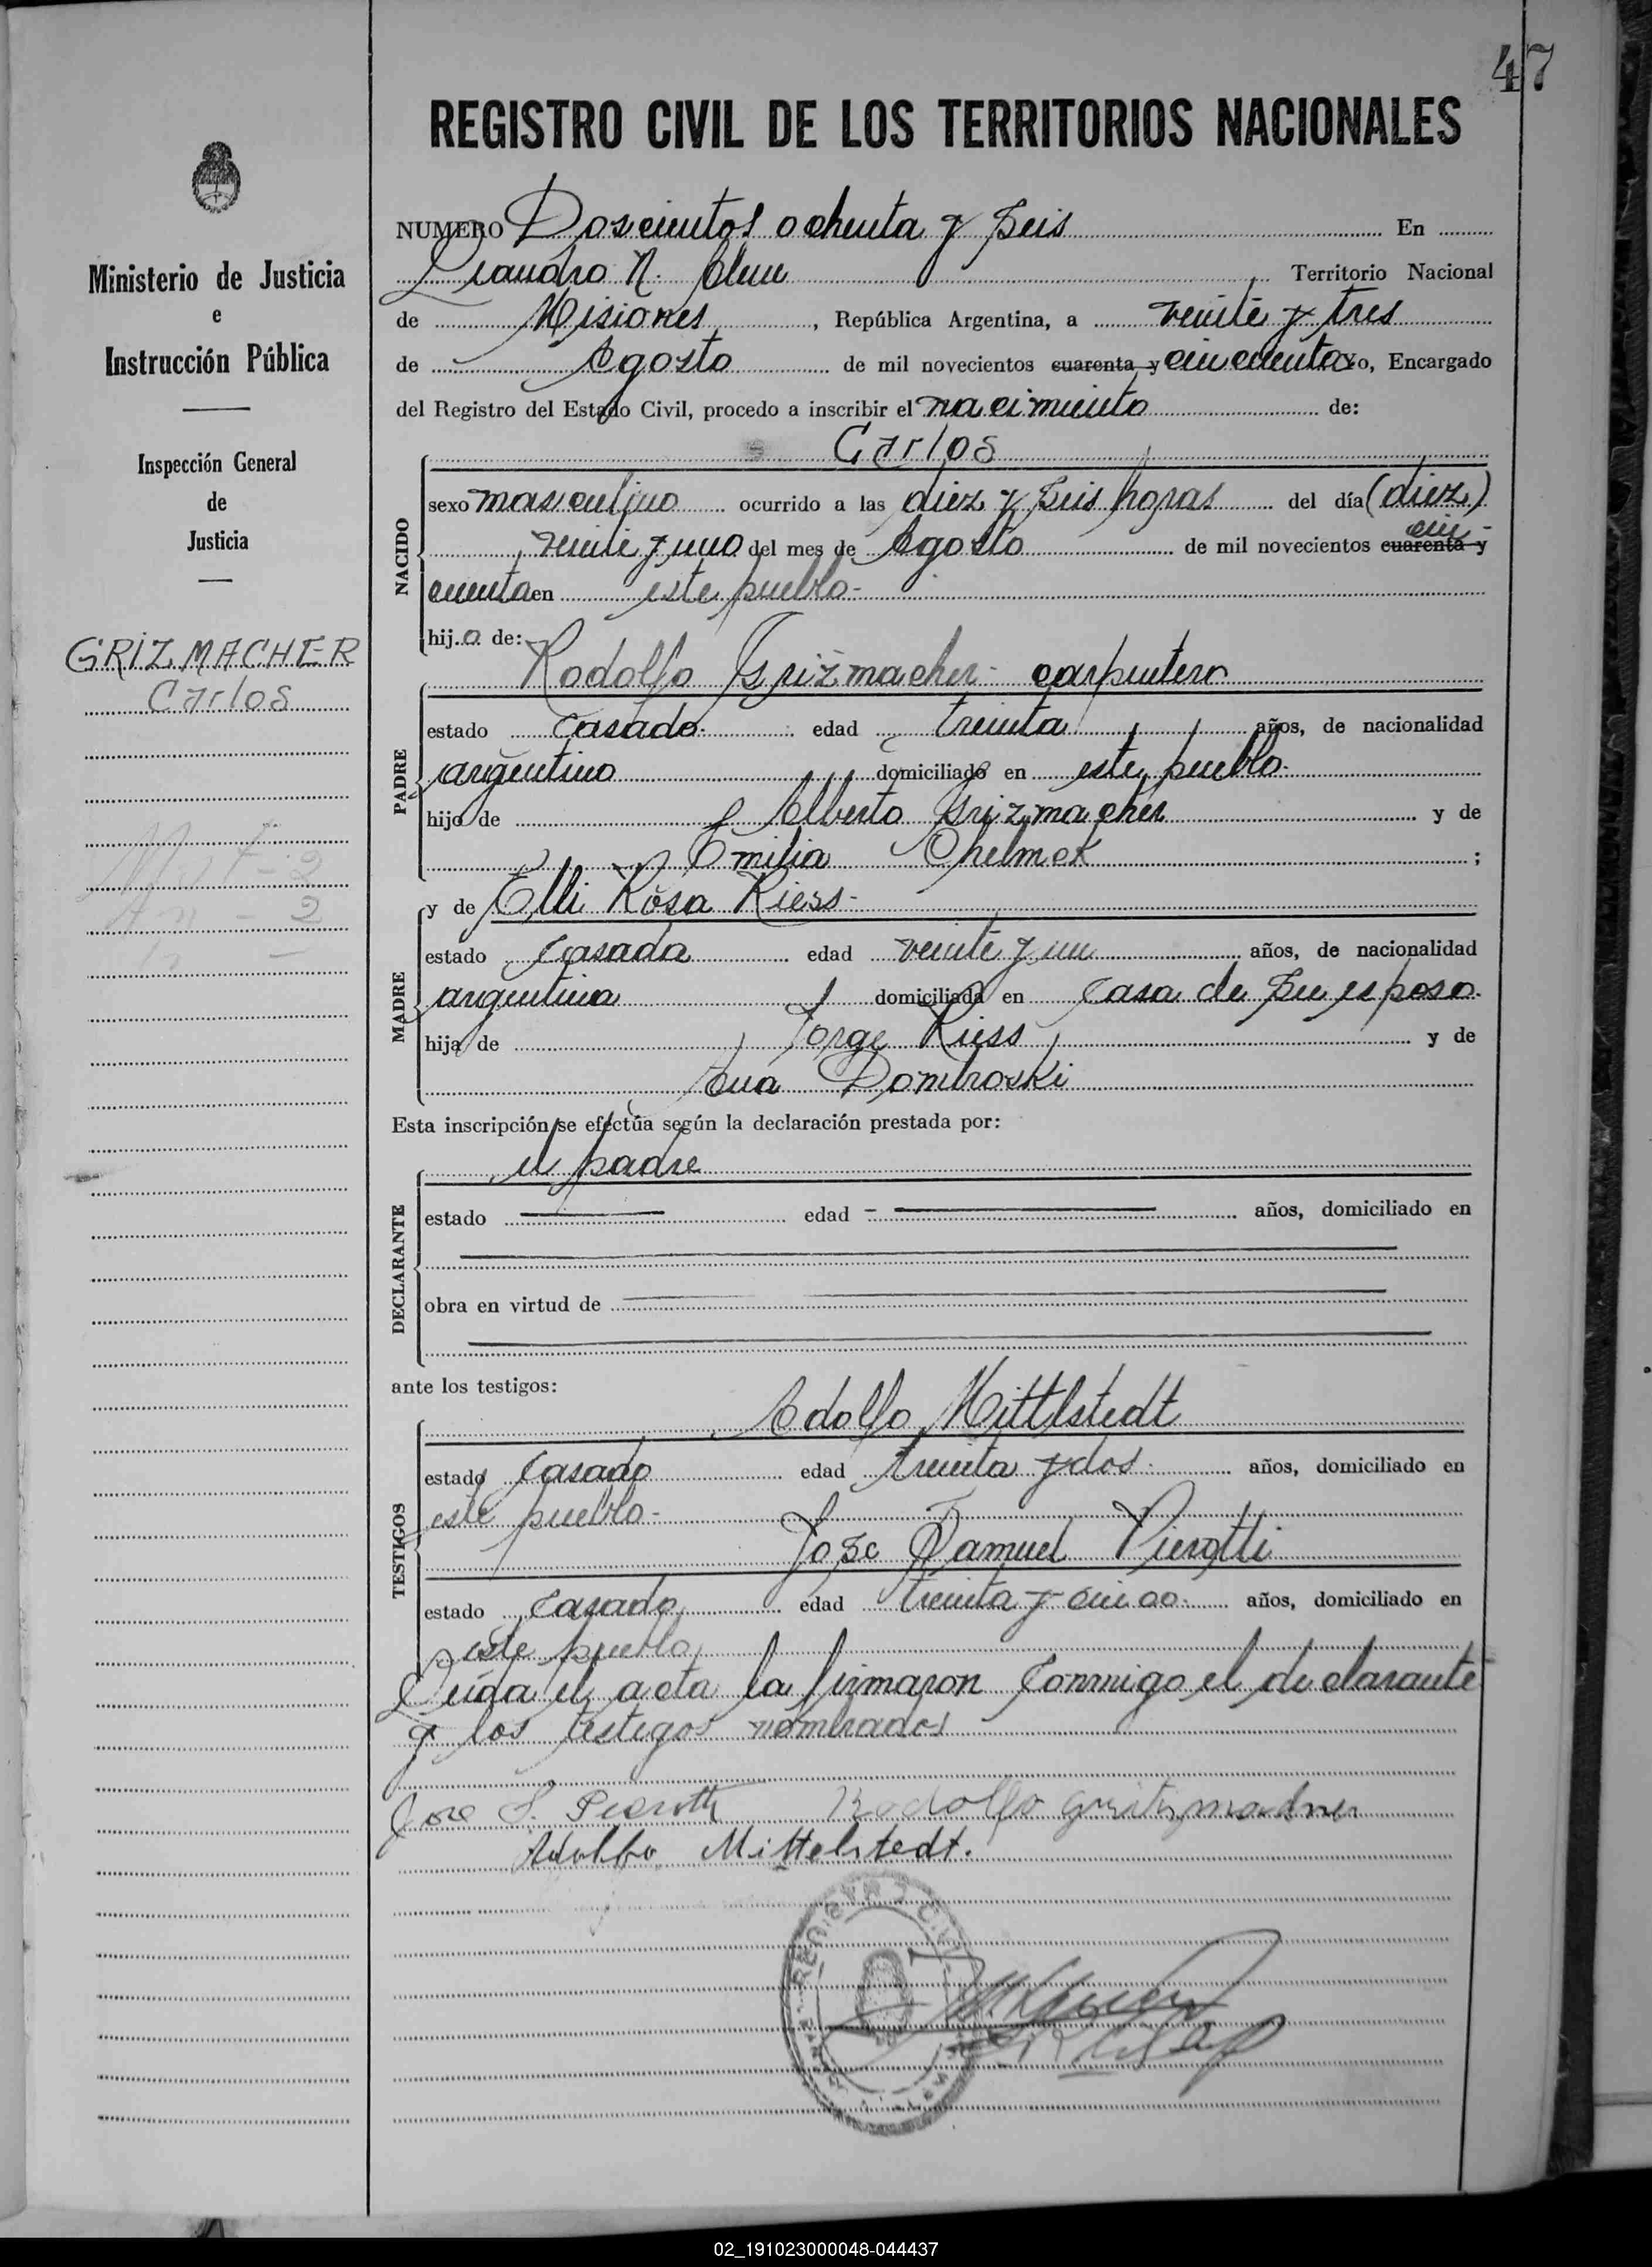 47
REGISTRO CIVIL DE LOS TERRITORIOS NACIONALES
Ministerio de Justicia
e
Instrucción Pública
Inspección General
de
Justicia
GRIZMACHER
Carlos
NUMERO Doscientos ochenta y seis En
Leandro N. Alem Territorio Nacional
de Misiones, República Argentina, a veinte y tres
de Agosto de mil novecientos cuarenta y cincuenta yo, Encargado
del Registro del Estado Civil, procedo a inscribir el nacimiento de:
Carlos
NACIDO
sexo masculino ocurrido a las diez y seis horas del día (diez)
veinte y uno del mes de Agosto de mil novecientos cuarenta y cin-
cuenta en este pueblo-
hijo de:
Rodolfo Grizmacher- carpintero
PADRE
estado casado. edad treinta años, de nacionalidad
argentino domiciliado en este pueblo.
hijo de Alberto Grizmacher y de
Emilia Chelmek;
y de Elli Rosa Riess-
MADRE
estado casada edad veinte y un años, de nacionalidad
argentina domiciliada en casa de su esposo.
hija de Jorge Riess y de
Ana Dombroski
Esta inscripción se efectúa según la declaración prestada por:
el padre
DECLARANTE
estado edad años, domiciliado en
obra en virtud de
ante los testigos:
Adolfo Mittlstedt
TESTIGOS
estado casado edad treinta y dos. años, domiciliado en
este pueblo-
Jose Samuel Pierotti
estado casado edad treinta y cinco. años, domiciliado en
este pueblo
Leida el acta la firmaron conmigo el declarante
y los testigos nombrados
Jose S. Pierotti Rodolfo
Adolfo Mittelstedt.
REGISTRO CIVIL
02_191023000048-044437